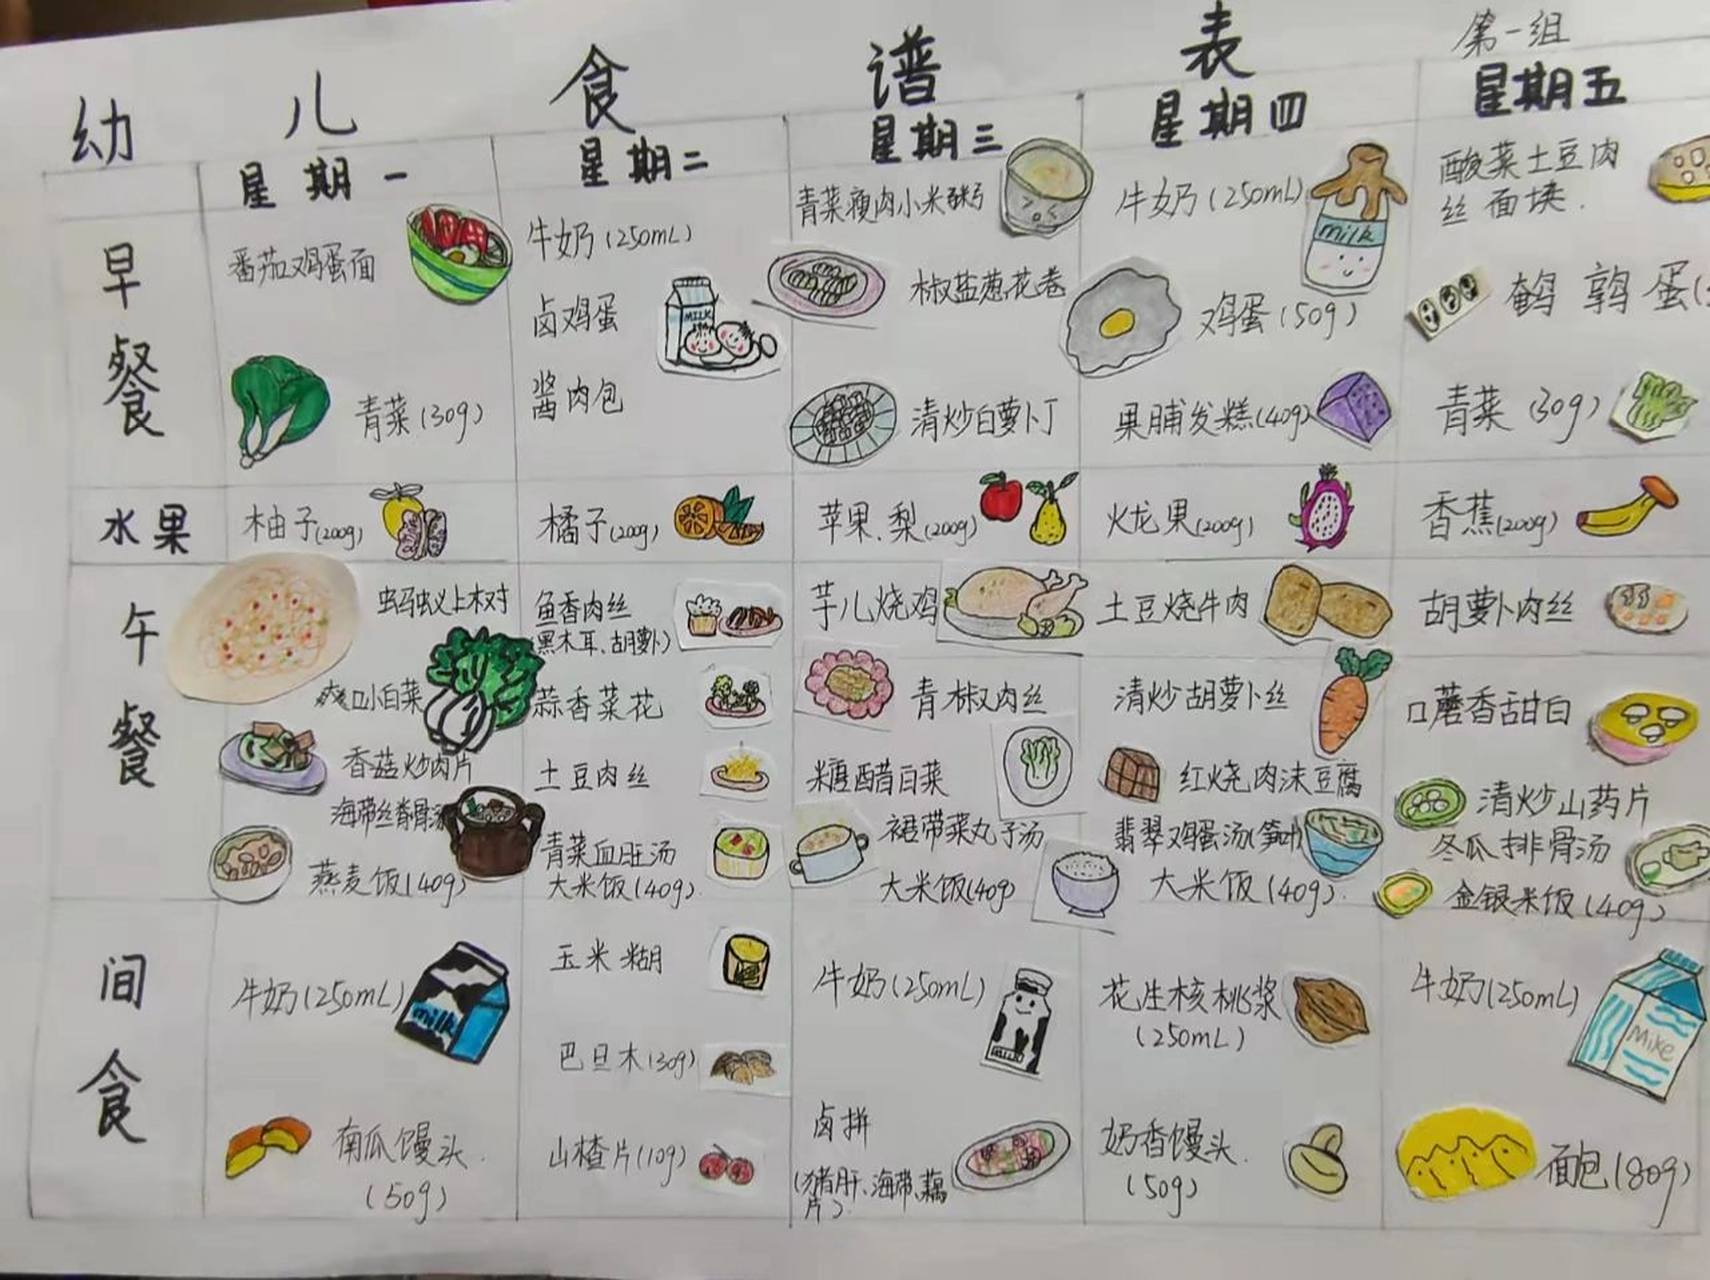 第一组
幼儿食谱表
星期一
星期二
星期三
星期四
星期五
早餐
番茄鸡蛋面
青菜(30g)
牛奶(250mL)
卤鸡蛋
酱肉包
MILK
青菜瘦肉小米粥
椒盐葱花卷
清炒白萝卜丁
牛奶(250mL)
milk
鸡蛋(50g)
果脯发糕(40g)
酸菜土豆肉
丝面块.
鹌鹑蛋(
青菜(30g)
水果
柚子(200g)
橘子(200g)
苹果、梨(200g)
火龙果(200g)
香蕉(200g)
午餐
蚂蚁上树
爽口小白菜
香菇炒肉片
海带丝脊骨汤
燕麦饭(40g)
鱼香肉丝
(黑木耳、胡萝卜)
蒜香菜花
土豆肉丝
青菜血旺汤
大米饭(40g).
芋儿烧鸡
青椒肉丝
糖醋白菜
裙带菜丸子汤
大米饭(40g)
土豆烧牛肉
清炒胡萝卜丝
红烧肉沫豆腐
翡翠鸡蛋汤(笋叶)
大米饭(40g).
胡萝卜肉丝
口蘑香甜白
清炒山药片
冬瓜排骨汤
金银米饭(40g)
间食
牛奶(250mL)
milk
南瓜馒头.
(50g)
玉米糊
巴旦木(30g)
山楂片(10g)
牛奶(250mL)
卤拼
(猪肝、海带、藕
片)
花生核桃浆
(250mL)
奶香馒头.
(50g)
牛奶(250mL)
Mike
面包(80g)